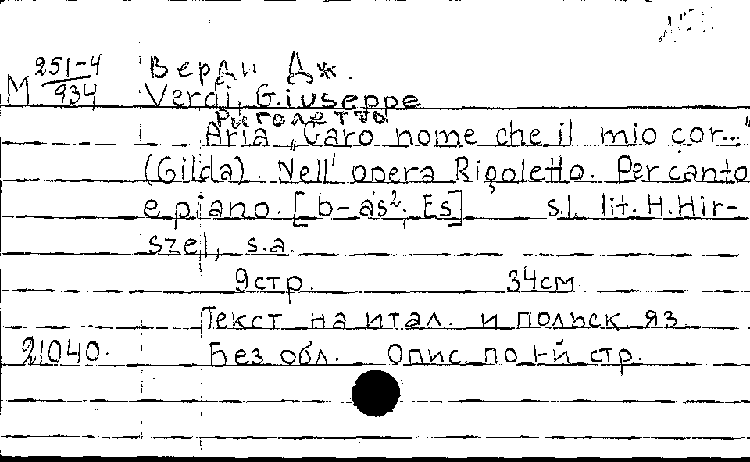 М 251-4/934
Верди Дж.
Verdi, Giuseppe
Риголетто
Aria „Caro nome che il mio cor..."
(Gilda). Nell' opera Rigoletto. Per canto
e piano. [b-as²; Es] s.l. lit. H. Hir-
szel, s.a.
9 стр. 34 см
Текст на итал. и польск яз
21040. Без обл. Опис по 1-й стр.